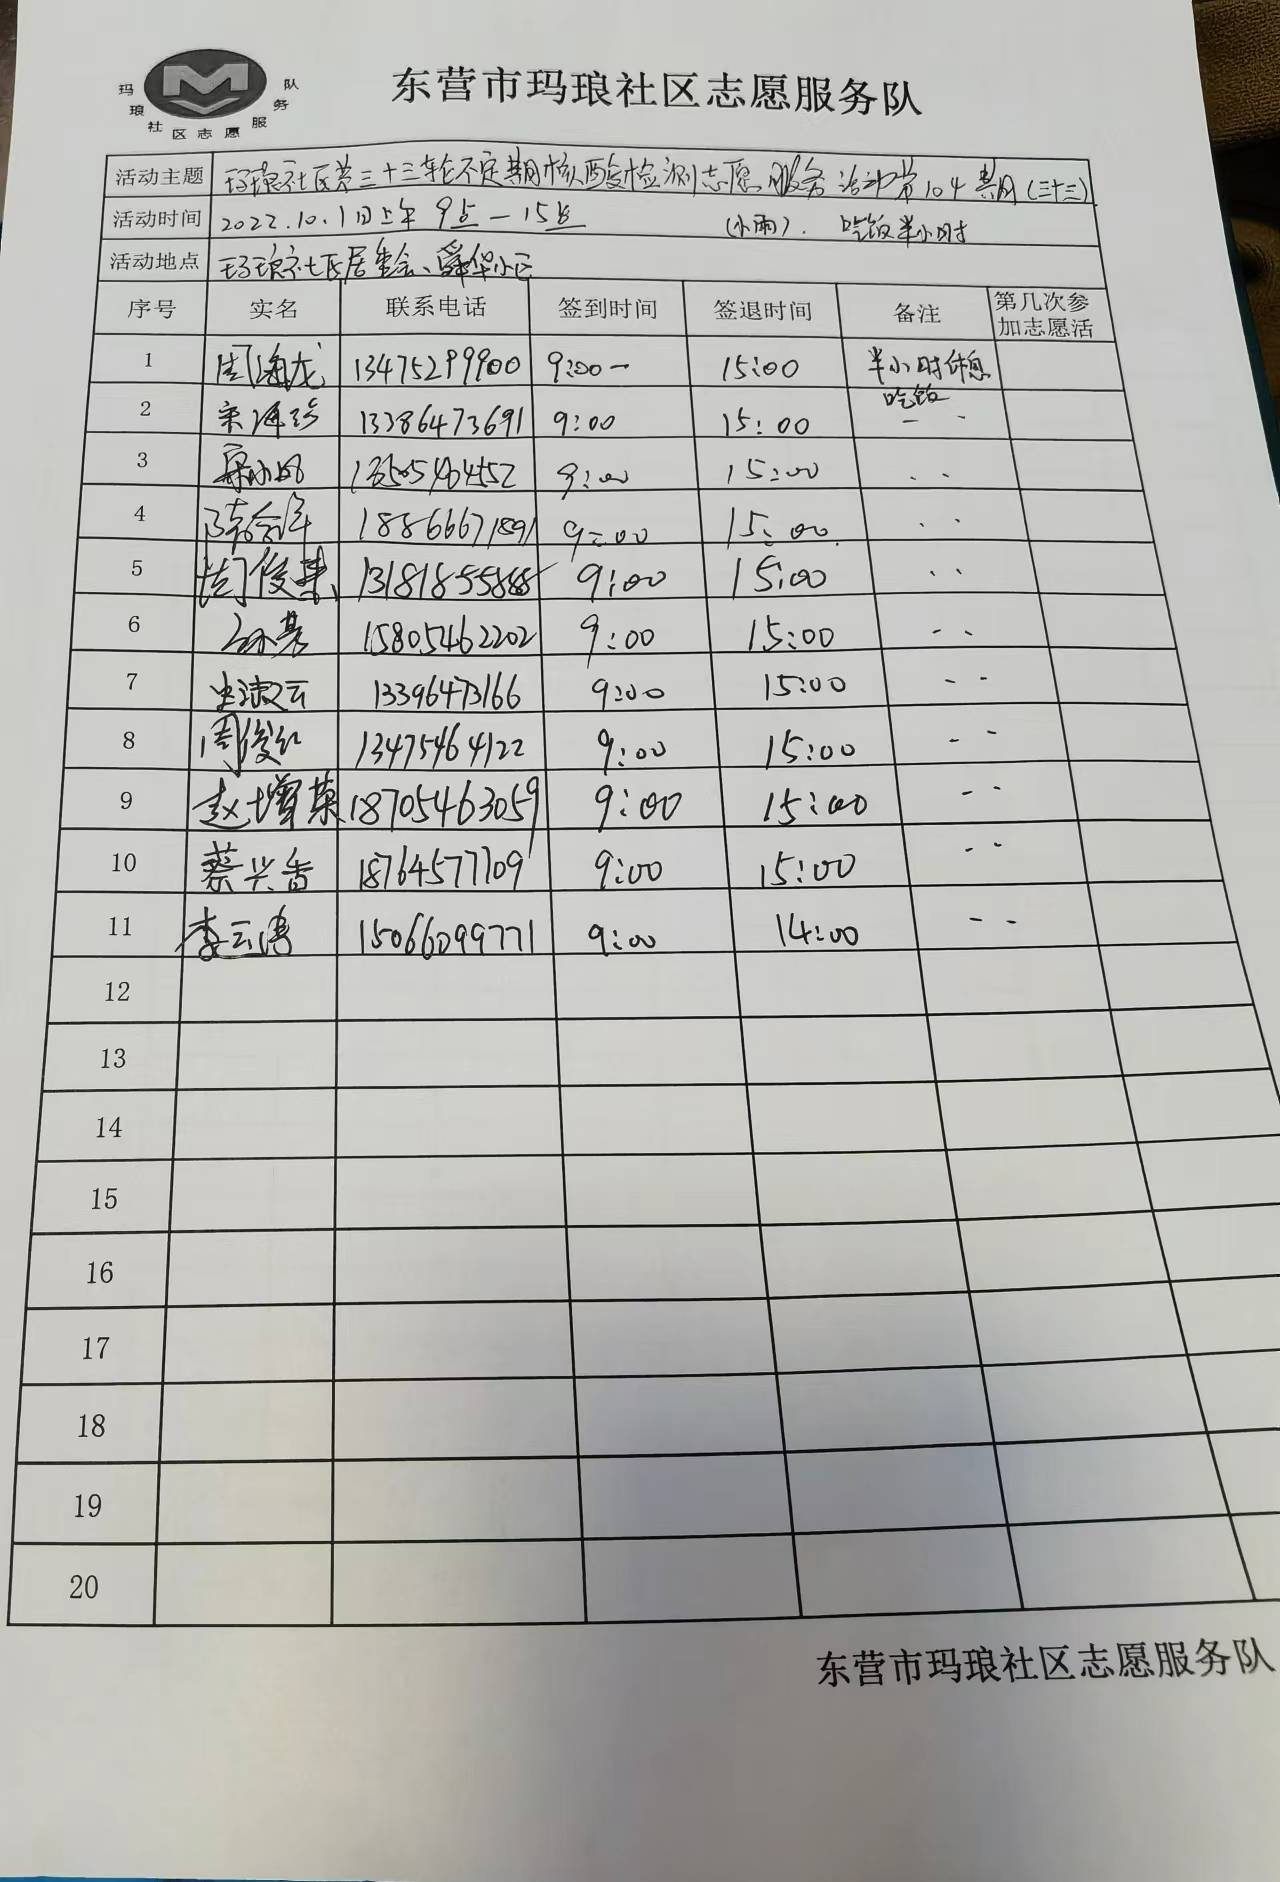 玛琅社区志愿服务队
东营市玛琅社区志愿服务队
活动主题 玛琅社区第三十三轮不定期核酸检测志愿服务活动第104期(三十三)
活动时间 2022.10.1日上午9点—15点 (小雨). 吃饭半小时
活动地点 玛琅社区居委会、舜华小区
序号 实名 联系电话 签到时间 签退时间 备注 第几次参加志愿活
1 周海龙 13475299900 9:00- 15:00 半小时休息吃饭
2 宋海珍 13386473691 9:00 15:00
3 13505464552 9:00 15:00
4 18866671891 9:00 15:00
5 周俊 13181855888 9:00 15:00
6 孙亮 15805462202 9:00 15:00
7 史淑云 13396473166 9:00 15:00
8 周俊红 13475464122 9:00 15:00
9 赵增菊 18705463059 9:00 15:00
10 蔡兴香 18764577109 9:00 15:00
11 李云涛 15066099771 9:00 14:00
12
13
14
15
16
17
18
19
20
东营市玛琅社区志愿服务队